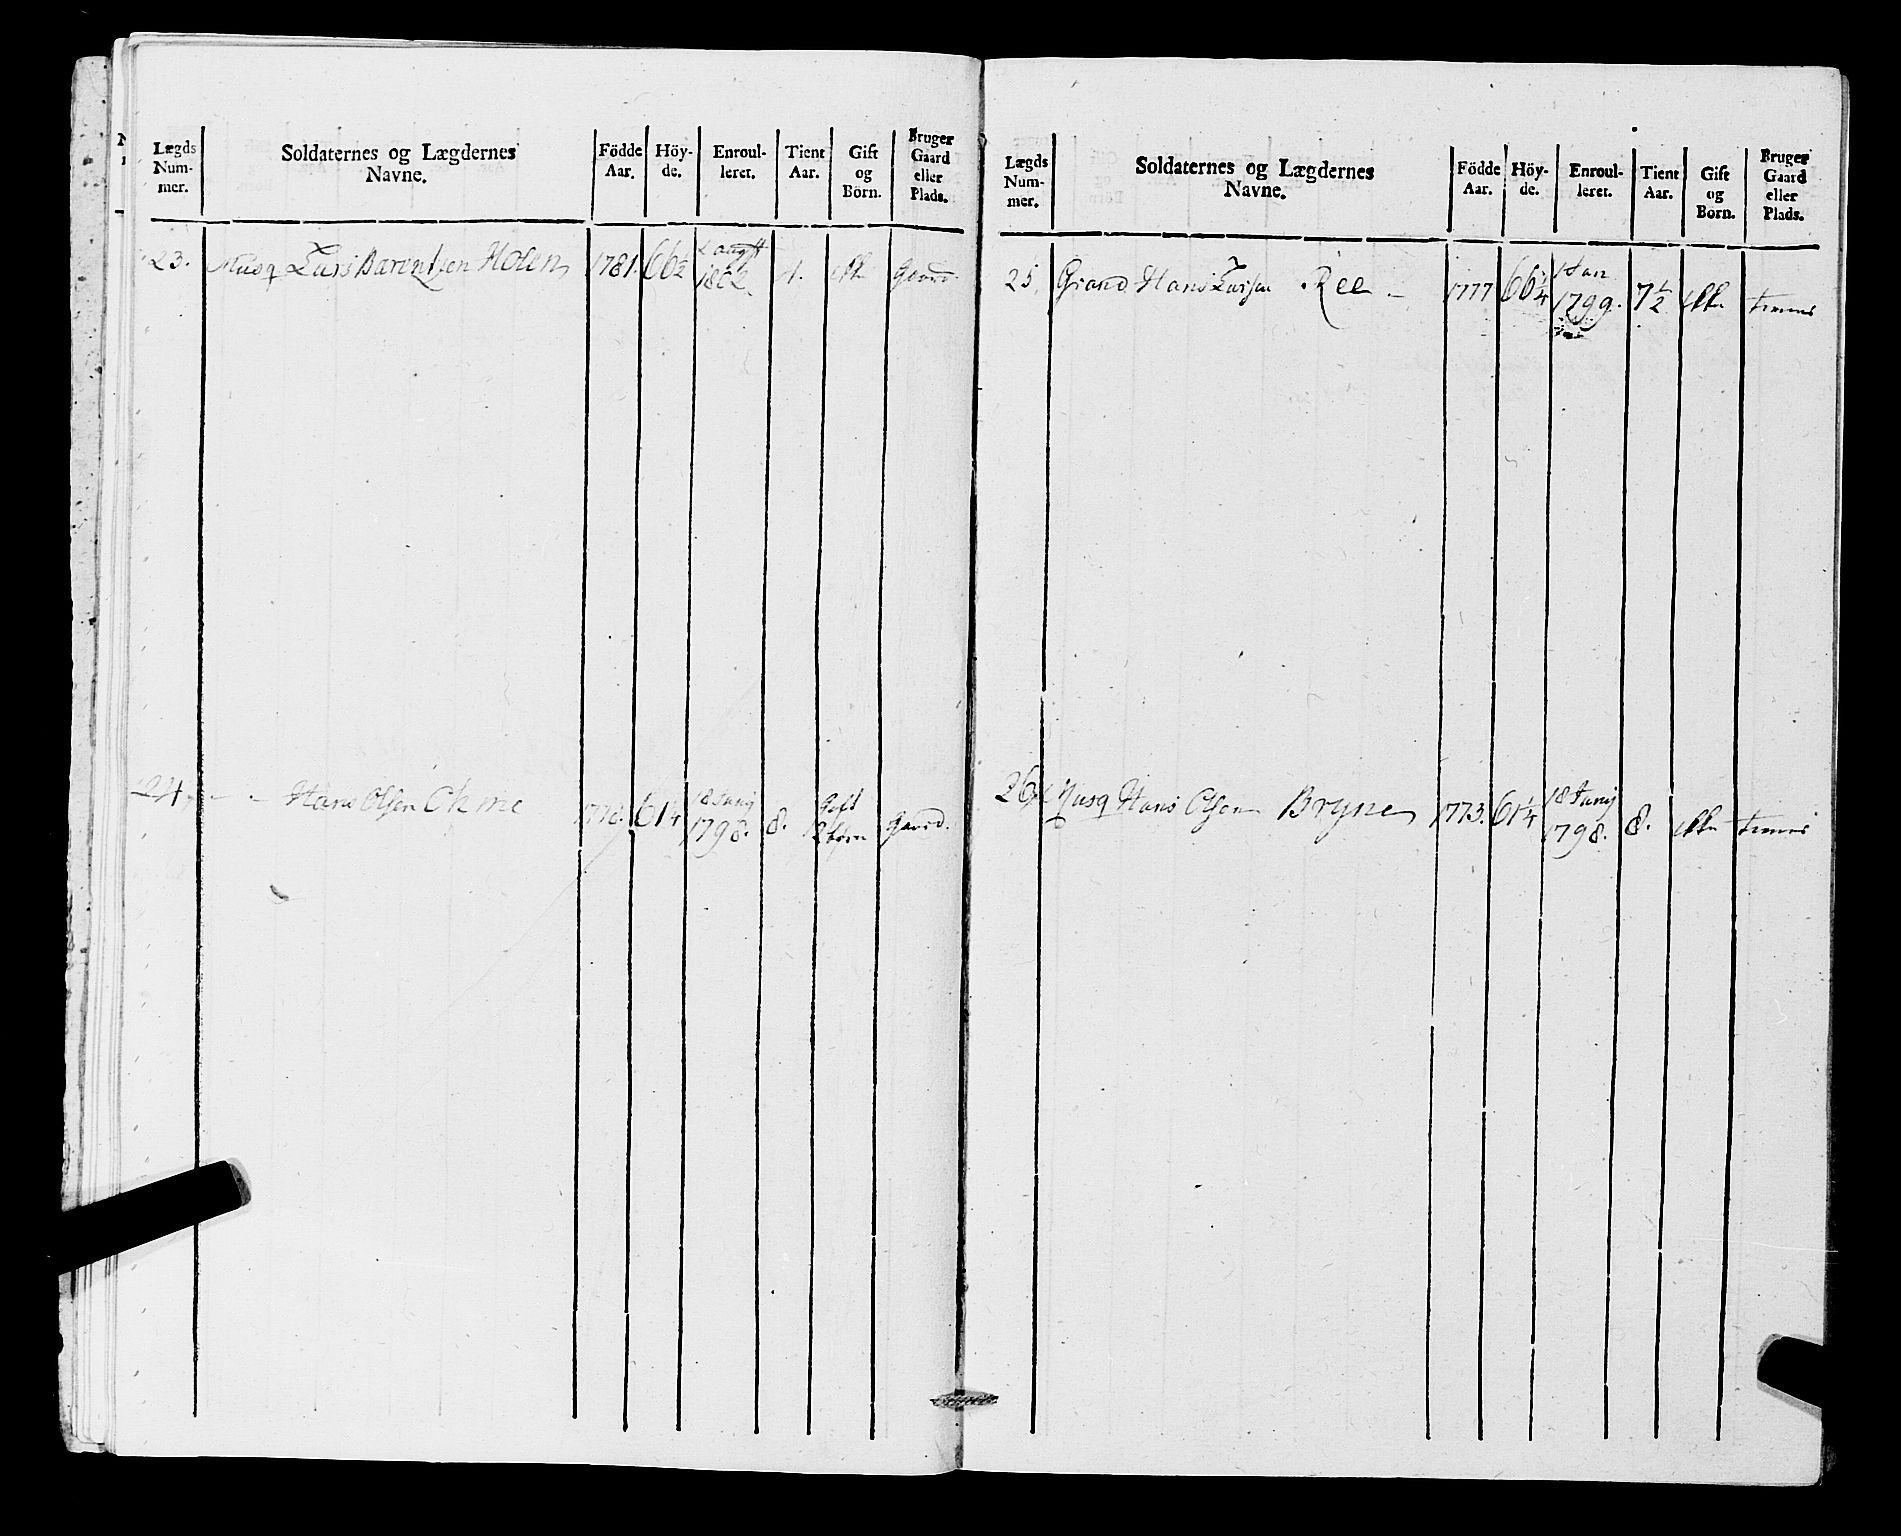 Lægds Num- mer.
Soldaternes og Lægdernes Navne.
Födde Aar.
Höy- de.
Enroul- leret.
Tient Aar.
Gift og Börn.
Bruger Gaard eller Plads.
23. Musq Lars Barentsen Holen 1781. 66 1/2 2 augst 1802. 4. Gaard.
24. Hans Olsen 61 1/4 18 Junij 1798. 8. Gift 2 børn Gaard.
Lægds Num- mer.
Soldaternes og Lægdernes Navne.
Födde Aar.
Höy- de.
Enroul- leret.
Tient Aar.
Gift og Born.
Bruger Gaard eller Plads.
25. Grand. Hans Larsen Ree 1777 66 1/4 1 Jan 1799. 7 1/2 tienner
26. Musq Hans Olsen Bryne 1773. 61 1/4 18 Junij 1798. 8. tienner